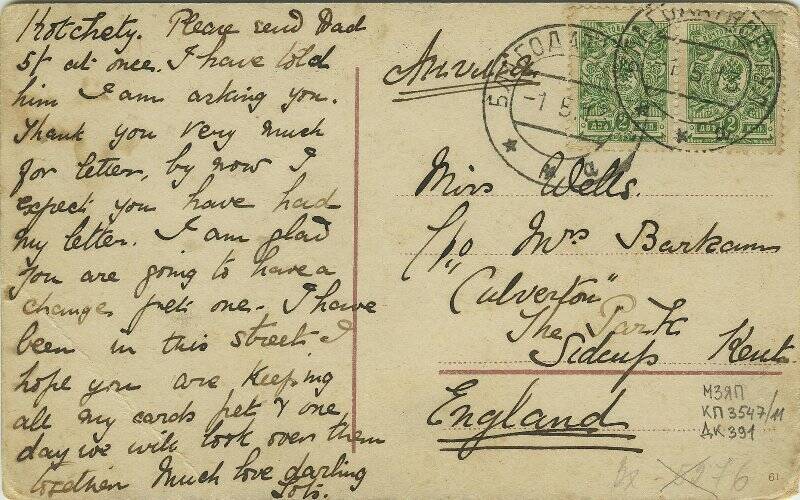 Kotchety. Please send Dad
5/- at once. I have told
him I am asking you.
Thank you very much
for letter, by now I
expect you have had
my letter. I am glad
you are going to have a
change, pet one. I have
been in this street. I
hope you are keeping
all my cards pet & one
day we will look over them
together. Much love darling
Англия
Miss Wells.
C/o Mrs Barkam
"Culverton"
The Park
Sidcup Kent
England
МЗЯП
КП 3547/11
ДК 391
61